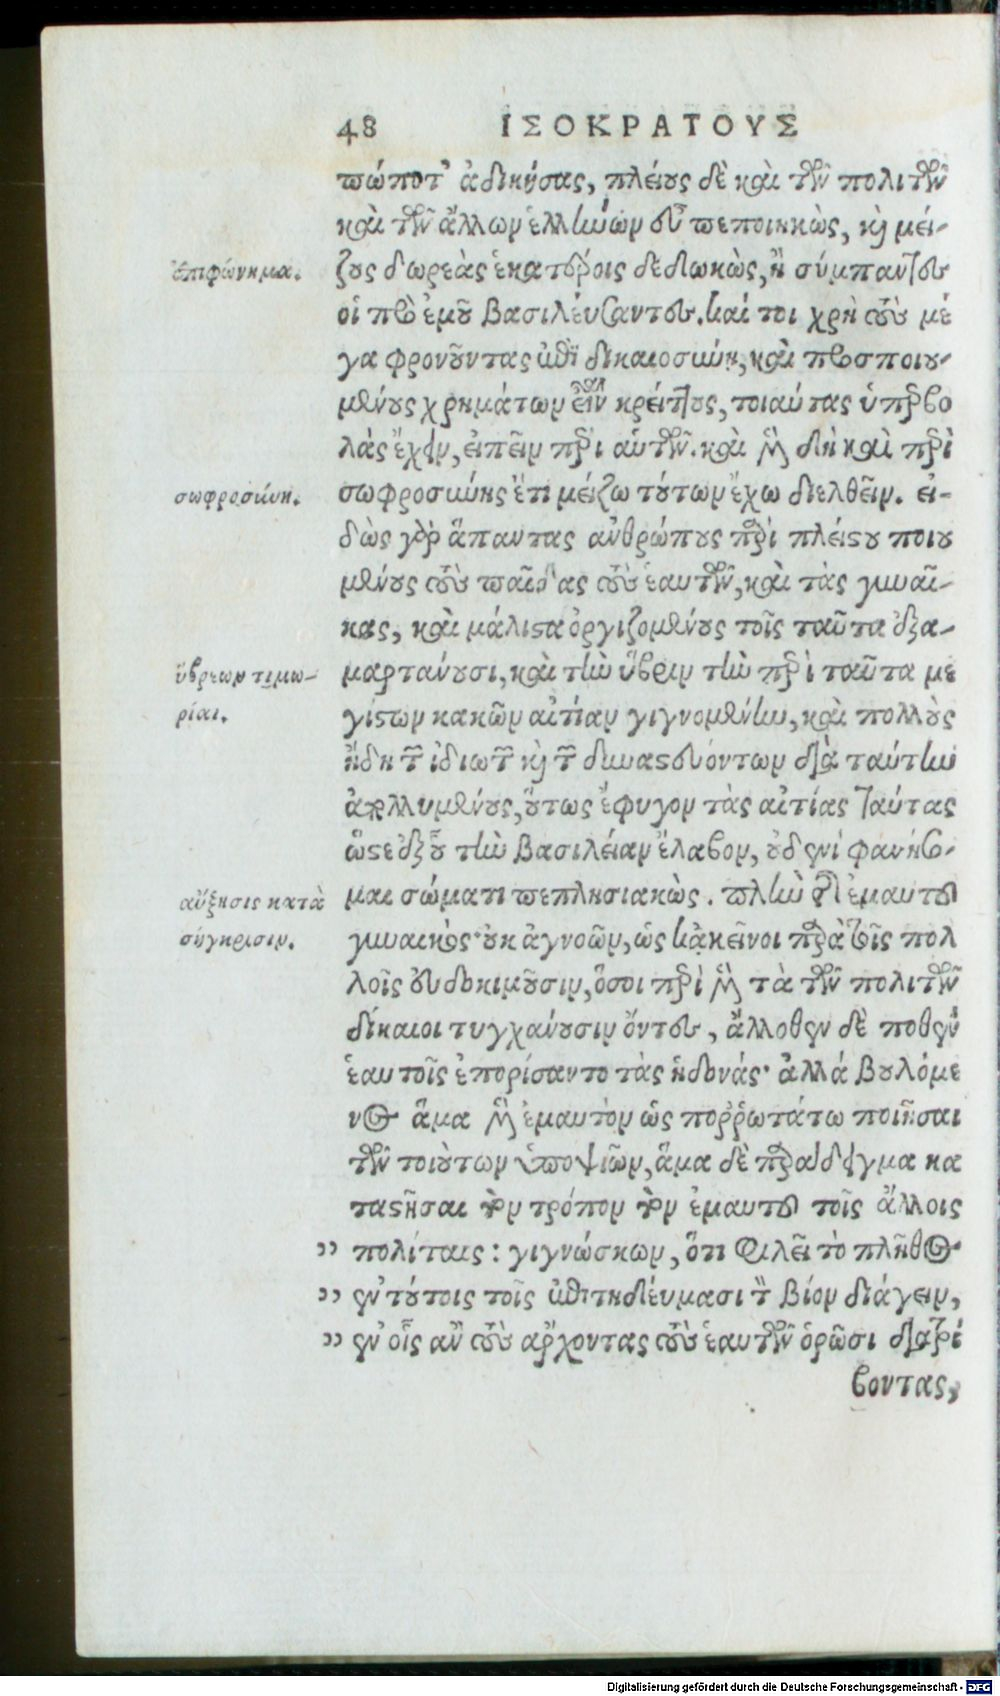 48 ΙΣΟΚΡΑΤΟΥΣ
πώποτ' ἀδικήσας, πλείους δὲ καὶ τῶν πολιτῶν
καὶ τῶν ἄλλων ἑλλήνων εὖ πεποιηκὼς, καὶ μεί-
ἐπιφώνημα.
ζους δωρεὰς ἑκατέροις δεδωκὼς, ἢ σύμπαντες
οἱ πρὸ ἐμοῦ βασιλεύσαντες. καί τοι χρὴ τοὺς μέ
γα φρονοῦντας ἐπὶ δικαιοσύνῃ, καὶ προσποιου-
μένους χρημάτων εἶναι κρείττους, τοιαύτας ὑπερβο
λὰς ἔχειν, εἰπεῖν περὶ αὑτῶν. καὶ μὲν δὴ καὶ περὶ
σωφροσύνη.
σωφροσύνης ἔτι μείζω τούτων ἔχω διελθεῖν. εἰ-
δὼς γὰρ ἅπαντας ἀνθρώπους περὶ πλείστου ποιου
μένους τοὺς παῖδας τοὺς ἑαυτῶν, καὶ τὰς γυναῖ-
κας, καὶ μάλιστα ὀργιζομένους τοῖς ταῦτα ἐξα-
ὕβρεων τιμω-
μαρτάνουσι, καὶ τὴν ὕβριν τὴν περὶ ταῦτα με
ρίαι.
γίστων κακῶν αἰτίαν γιγνομένην, καὶ πολλοὺς
ἤδη τῶν ἰδιωτῶν καὶ τῶν δυναστευόντων διὰ ταύτην
ἀπολλυμένους, οὕτως ἔφυγον τὰς αἰτίας ταύτας
ὥστε ἐξ οὗ τὴν βασιλείαν ἔλαβον, οὐδενὶ φανήσο-
αὔξησις κατὰ
μαι σώματι πεπλησιακὼς. πλὴν τῆς ἐμαυτοῦ
σύγκρισιν.
γυναικός· οὐκ ἀγνοῶν, ὡς κἀκεῖνοι παρὰ τοῖς πολ
λοῖς εὐδοκιμοῦσιν, ὅσοι περὶ μὲν τὰ τῶν πολιτῶν
δίκαιοι τυγχάνουσιν ὄντες, ἄλλοθεν δὲ ποθεν
ἑαυτοῖς ἐπορίσαντο τὰς ἡδονάς· ἀλλά βουλόμε
νος ἅμα μὲν ἐμαυτὸν ὡς ποῤῥωτάτω ποιῆσαι
τῶν τοιούτων ὑποψιῶν, ἅμα δὲ παράδειγμα κα
ταστῆσαι τὸν τρόπον τὸν ἐμαυτοῦ τοῖς ἄλλοις
,, πολίταις: γιγνώσκων, ὅτι φιλεῖ τὸ πλῆθος
,, ἐν τούτοις τοῖς ἐπιτηδεύμασι τὸν βίον διάγειν,
,, ἐν οἷς ἂν τοὺς ἄρχοντας τοὺς ἑαυτῶν ὁρῶσι διατρί
βοντας,
Digitalisierung gefördert durch die Deutsche Forschungsgemeinschaft - DFG